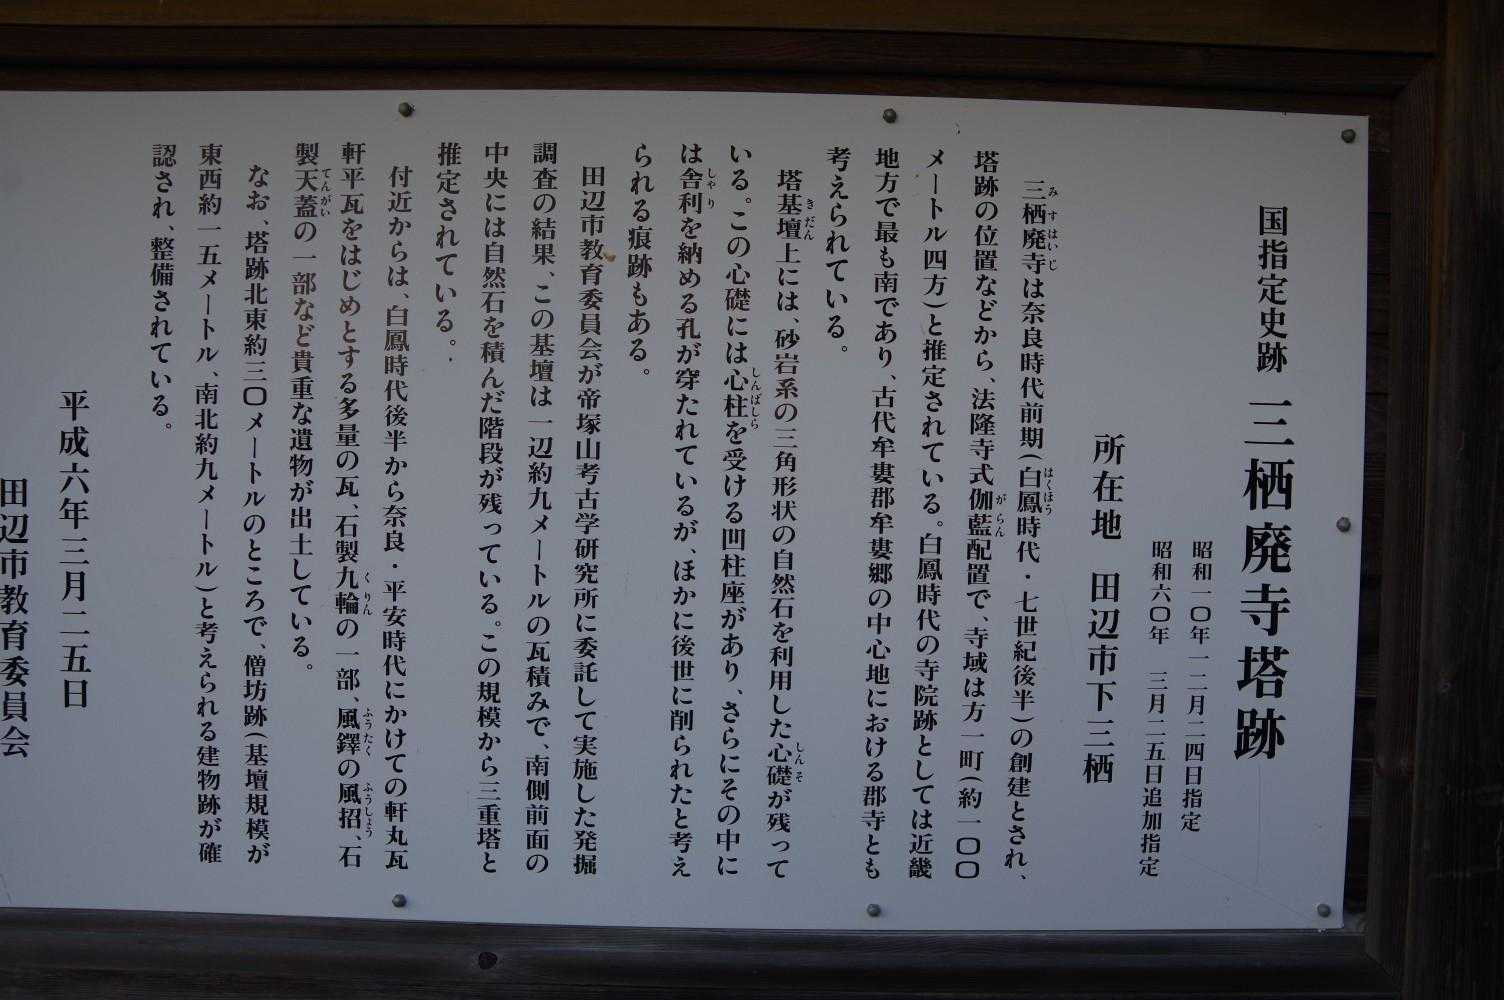 国指定史跡 三栖廃寺塔跡
昭和一〇年一二月二四日指定
昭和六〇年 三月二五日追加指定
所在地 田辺市下三栖
三栖廃寺は奈良時代前期(白鳳時代・七世紀後半)の創建とされ、
塔跡の位置などから、法隆寺式伽藍配置で、寺域は方一町(約一〇〇
メートル四方)と推定されている。白鳳時代の寺院跡としては近畿
地方で最も南であり、古代牟婁郡牟婁郷の中心地における郡寺とも
考えられている。
塔基壇上には、砂岩系の三角形状の自然石を利用した心礎が残って
いる。この心礎には心柱を受ける凹柱座があり、さらにその中に
は舎利を納める孔が穿たれているが、ほかに後世に削られたと考え
られる痕跡もある。
田辺市教育委員会が帝塚山考古学研究所に委託して実施した発掘
調査の結果、この基壇は一辺約九メートルの瓦積みで、南側前面の
中央には自然石を積んだ階段が残っている。この規模から三重塔と
推定されている。
付近からは、白鳳時代後半から奈良・平安時代にかけての軒丸瓦
軒平瓦をはじめとする多量の瓦、石製九輪の一部、風鐸の風招、石
製天蓋の一部など貴重な遺物が出土している。
なお、塔跡北東約三〇メートルのところで、僧坊跡(基壇規模が
東西約一五メートル、南北約九メートル)と考えられる建物跡が確
認され、整備されている。
平成六年三月二五日
田辺市教育委員会